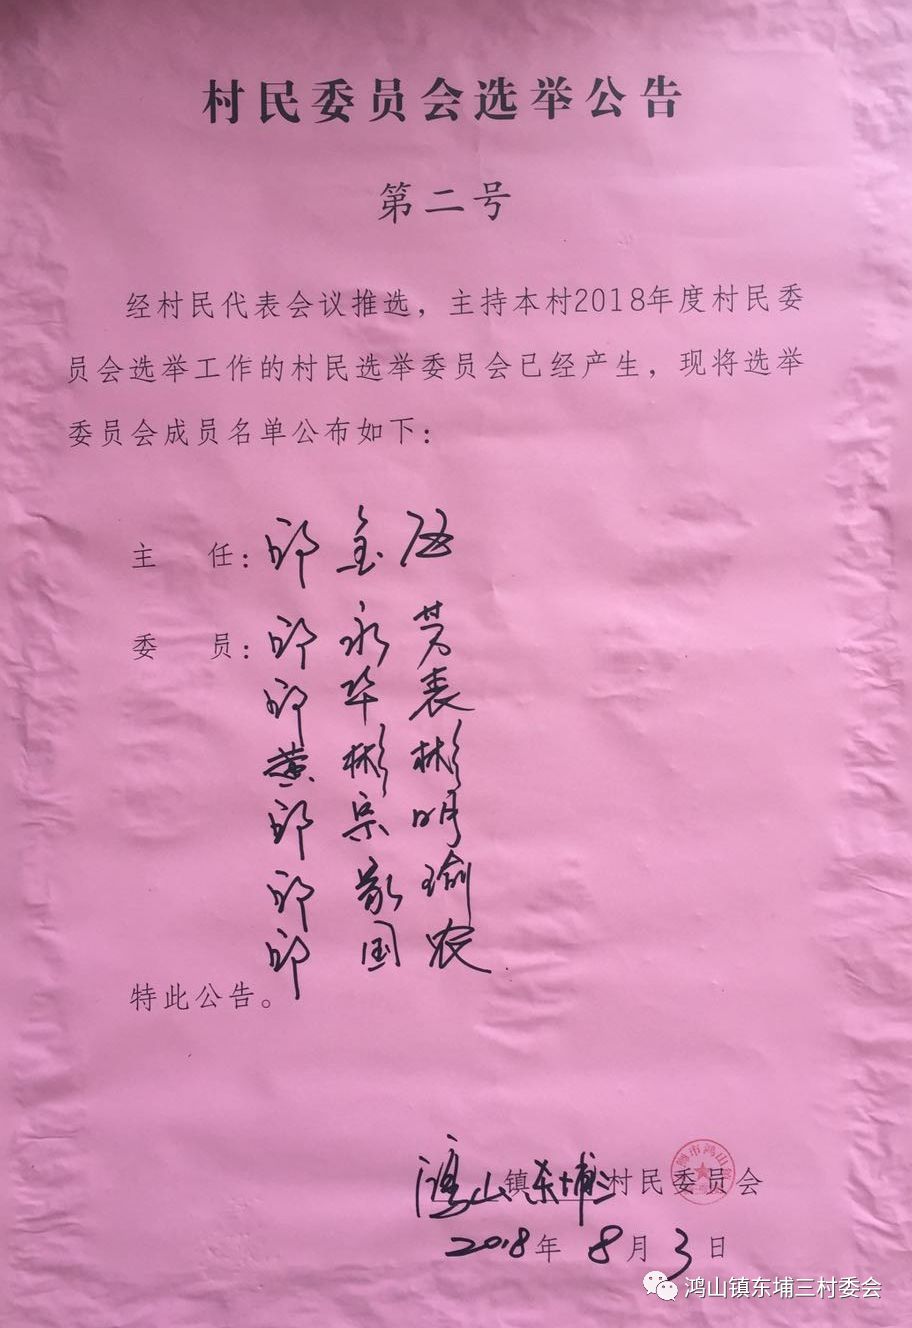 村民委员会选举公告
第二号
经村民代表会议推选，主持本村2018年度村民委
员会选举工作的村民选举委员会已经产生，现将选举
委员会成员名单公布如下：
主 任：邱金
委 员：邱永
邱华表
黄彬彬
邱宗明
邱 瑜
邱国农
特此公告。
鸿山镇东埔三村民委员会
2018年8月3日
鸿山镇东埔三村委会